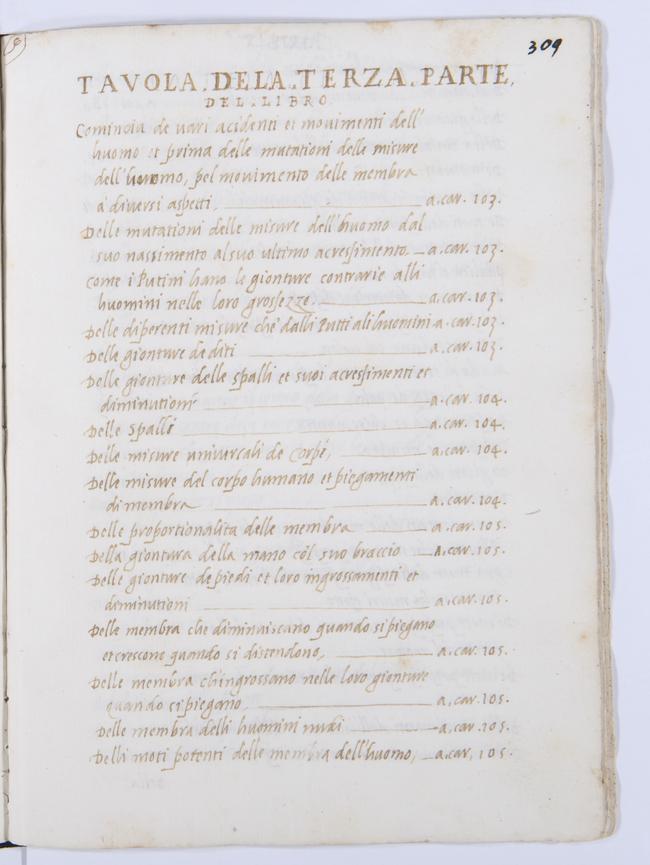 309
TAVOLA. DELA. TERZA. PARTE.
DEL. LIBRO.
Comincia de uari acidenti et movimenti dell'
huomo et prima delle mutationi delle misure
dell'huomo, pel movimento delle membra
a diversi aspetti. a.car. 103.
Delle mutationi delle misure dell'huomo dal
suo nassimento al suo ultimo acressimento a.car. 103.
Come i Putini hano le gionture contrarie alli
huomini nelle loro grossezze. a.car. 103.
Delle diferenti misure che dalli Putti ali huomini a.car. 103.
Delle gionture de diti a.car. 103.
Delle gionture delle spalli et suoi acressimenti et
diminutioni a.car. 104.
Delle Spalle a.car. 104.
Delle misure universali de Corpi, a.car. 104.
Delle misure del corpo humano et piegamenti
di membra a.car. 104
Delle proportionalita delle membra a.car. 105.
Della giontura della mano col suo braccio a.car. 105.
Delle gionture de piedi et loro ingrossamenti et
diminutioni a.car. 105.
Delle membra che diminuiscano quando si piegano
et crescone quando si distendono, a.car. 105.
Delle membra ch'ingrossano nelle loro gionture
quando si piegano, a.car. 105.
Delle membra delli huomini nudi a.car. 105.
Delli moti potenti delle membra dell'huomo, a.car, 105.